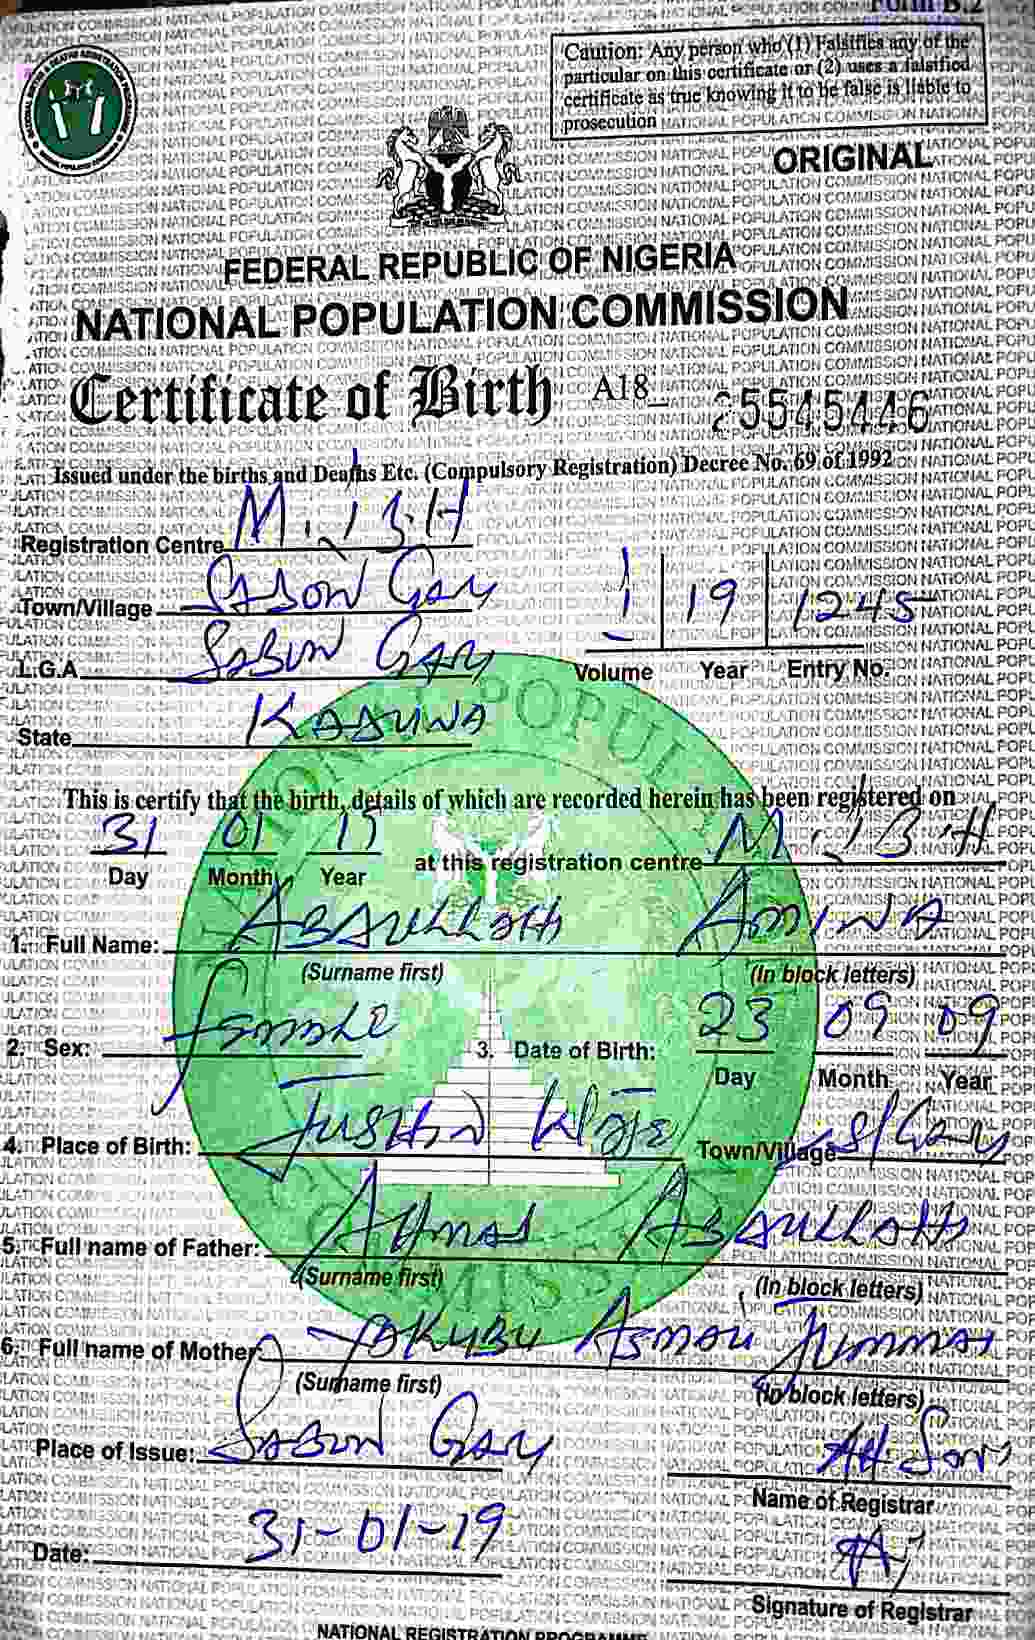 Form B.2
Caution: Any person who (1) Falsifies any of the
particular on this certificate or (2) uses a falsified
certificate as true knowing it to be false is liable to
prosecution
ORIGINAL
FEDERAL REPUBLIC OF NIGERIA
NATIONAL POPULATION COMMISSION
Certificate of Birth A18 25545446
Issued under the births and Deaths Etc. (Compulsory Registration) Decree No. 69 of 1992
Registration Centre M.I.B.H
Town/Village SABON GARI
1 19 1245
L.G.A SABON GARI
Volume Year Entry No.
State KADUNA
This is certify that the birth, details of which are recorded herein has been registered on
31 01 19 at this registration centre M.I.B.H
Day Month Year
1. Full Name: ABDULLAHI AMINA
(Surname first) (In block letters)
2. Sex: female 3. Date of Birth: 23 09 09
Day Month Year
4. Place of Birth: Town/Village S/Gari
5. Full name of Father: AHMAD ABDULLAHI
(Surname first) (In block letters)
6. Full name of Mother YAKUBU ASMAU JUMMAI
(Surname first) (In block letters)
Place of Issue: SABON GARI
Name of Registrar
Date: 31-01-19
Signature of Registrar
NATIONAL REGISTRATION PROGRAMME